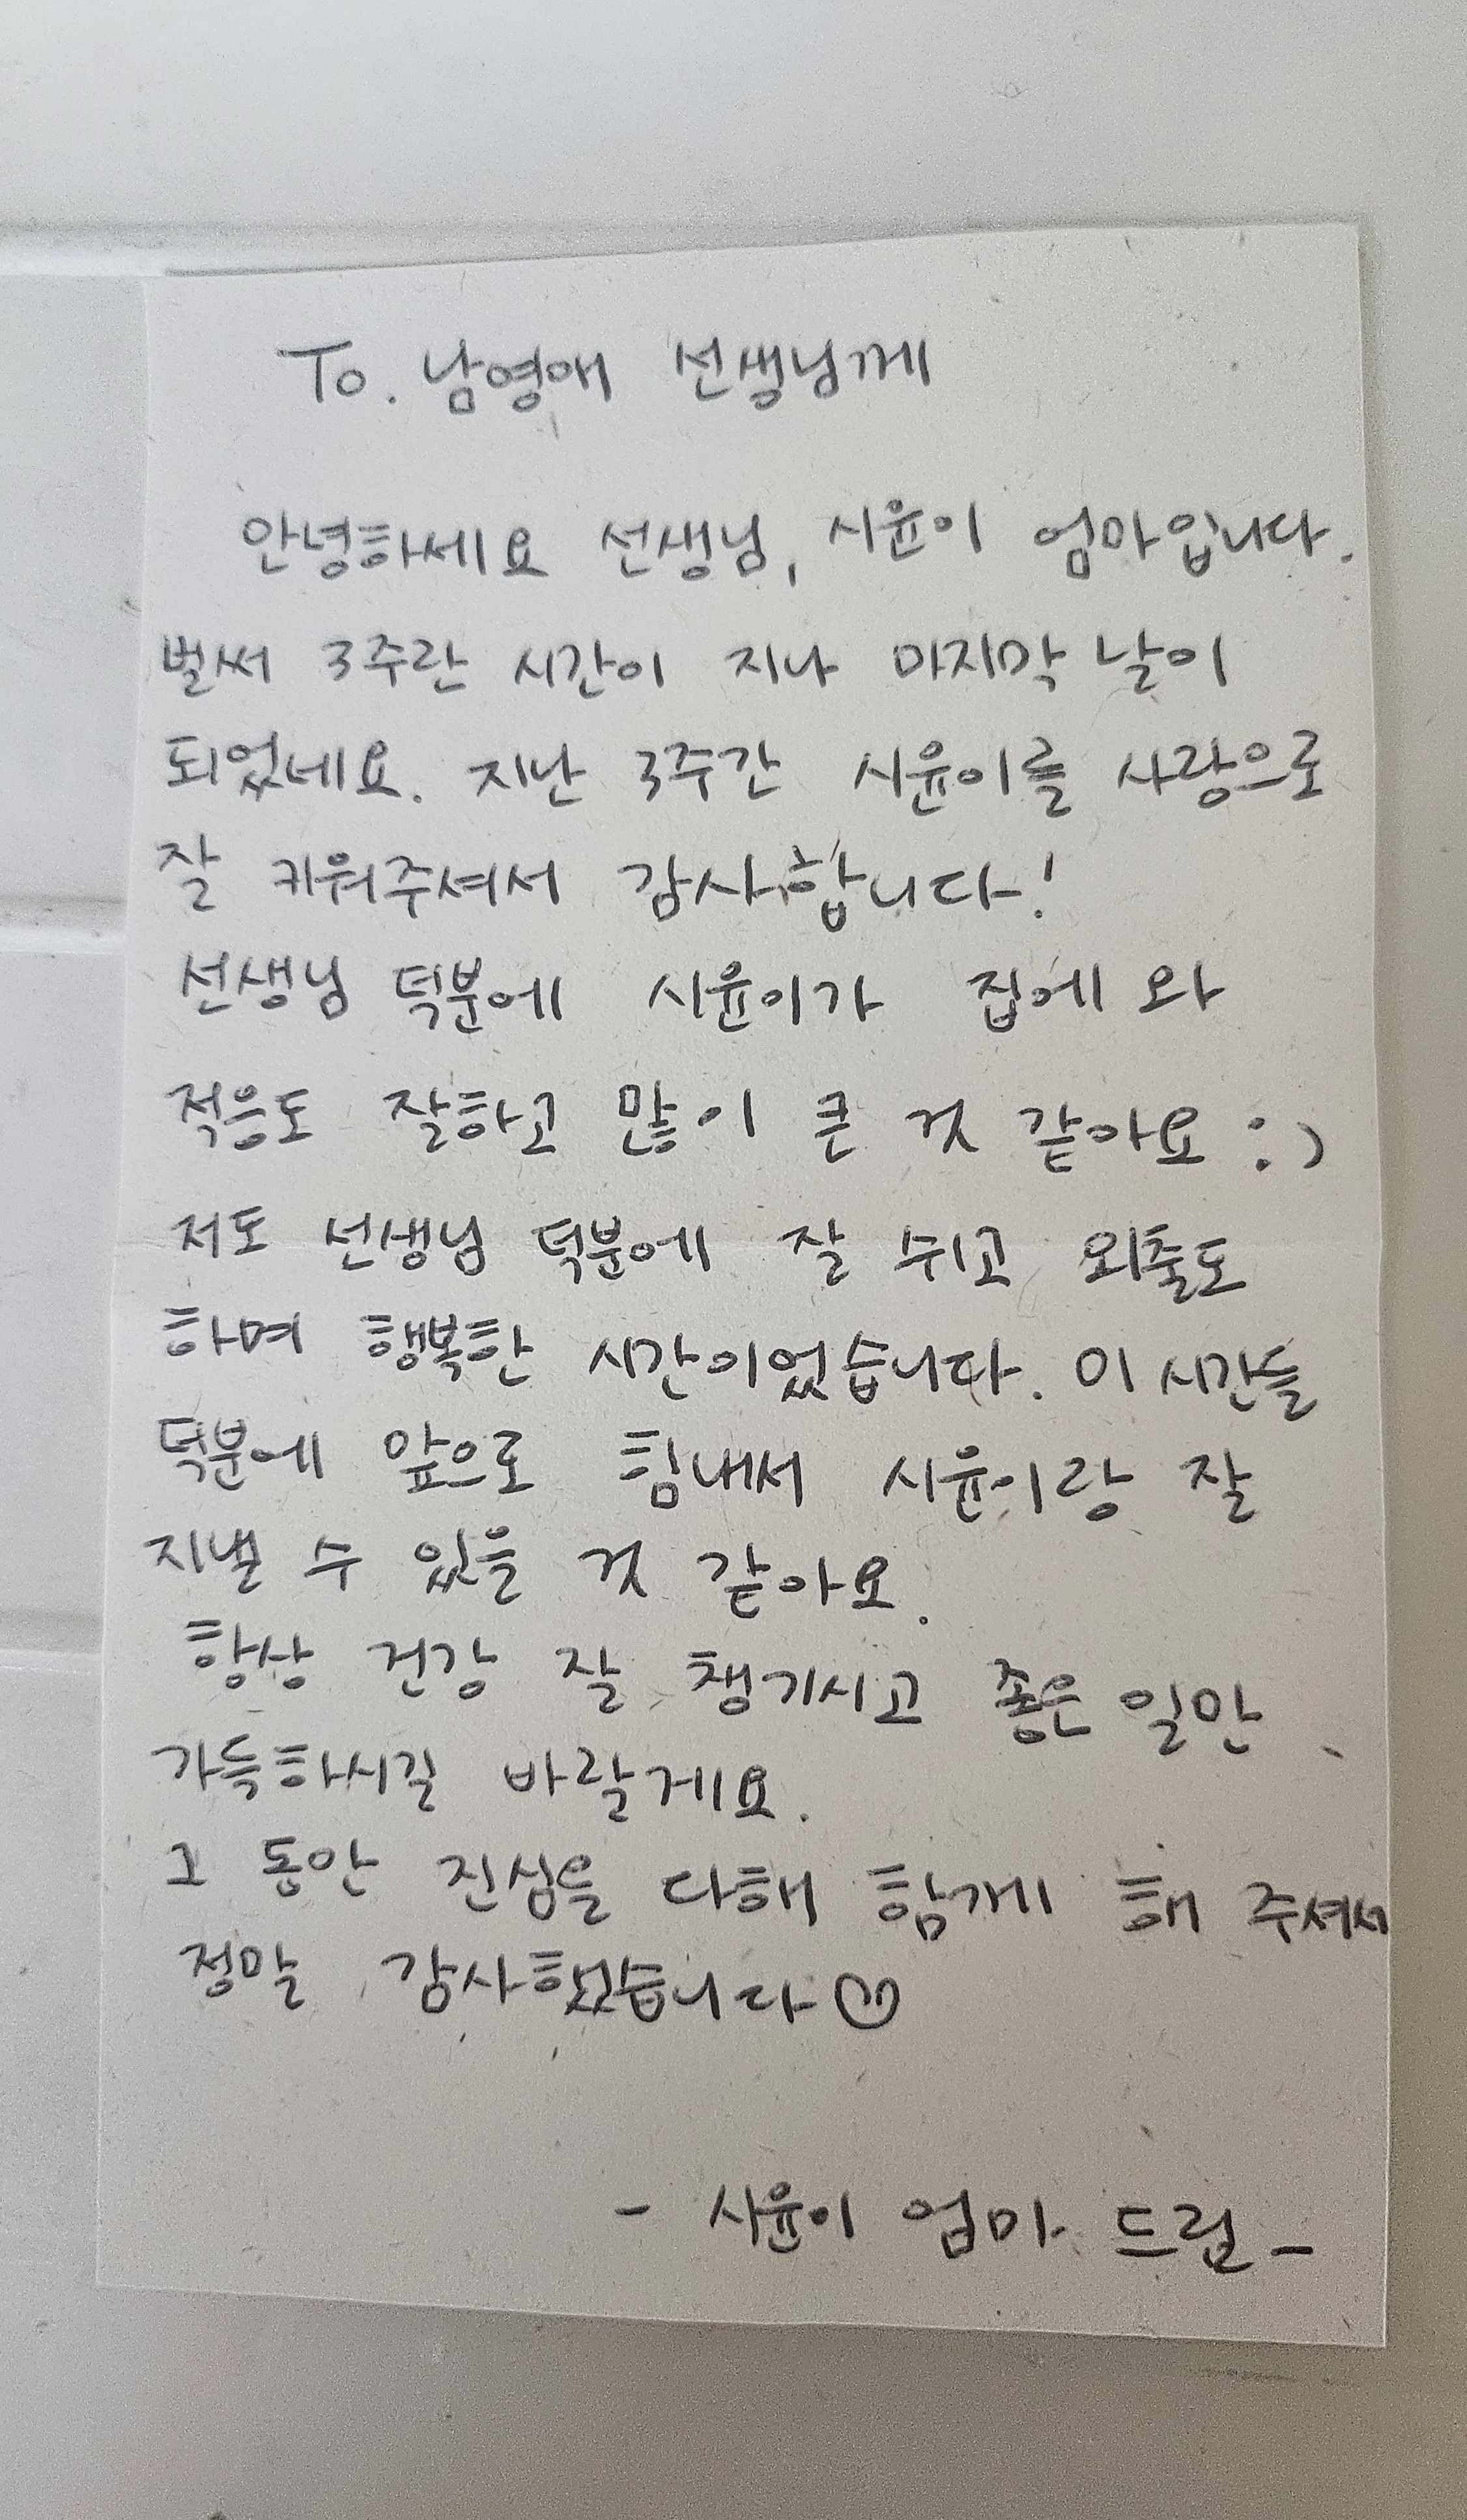 To. 남영애 선생님께
안녕하세요 선생님, 시윤이 엄마입니다.
벌써 3주란 시간이 지나 마지막 날이
되었네요. 지난 3주간 시윤이를 사랑으로
잘 키워주셔서 감사합니다!
선생님 덕분에 시윤이가 집에 와
적응도 잘하고 많이 큰 것 같아요 :)
저도 선생님 덕분에 잘 쉬고 외출도
하며 행복한 시간이었습니다. 이 시간들
덕분에 앞으로 힘내서 시윤이랑 잘
지낼 수 있을 것 같아요.
항상 건강 잘 챙기시고 좋은 일만
가득하시길 바랄게요.
그 동안 진심을 다해 함께 해 주셔서
정말 감사했습니다♡
- 시윤이 엄마 드림 -